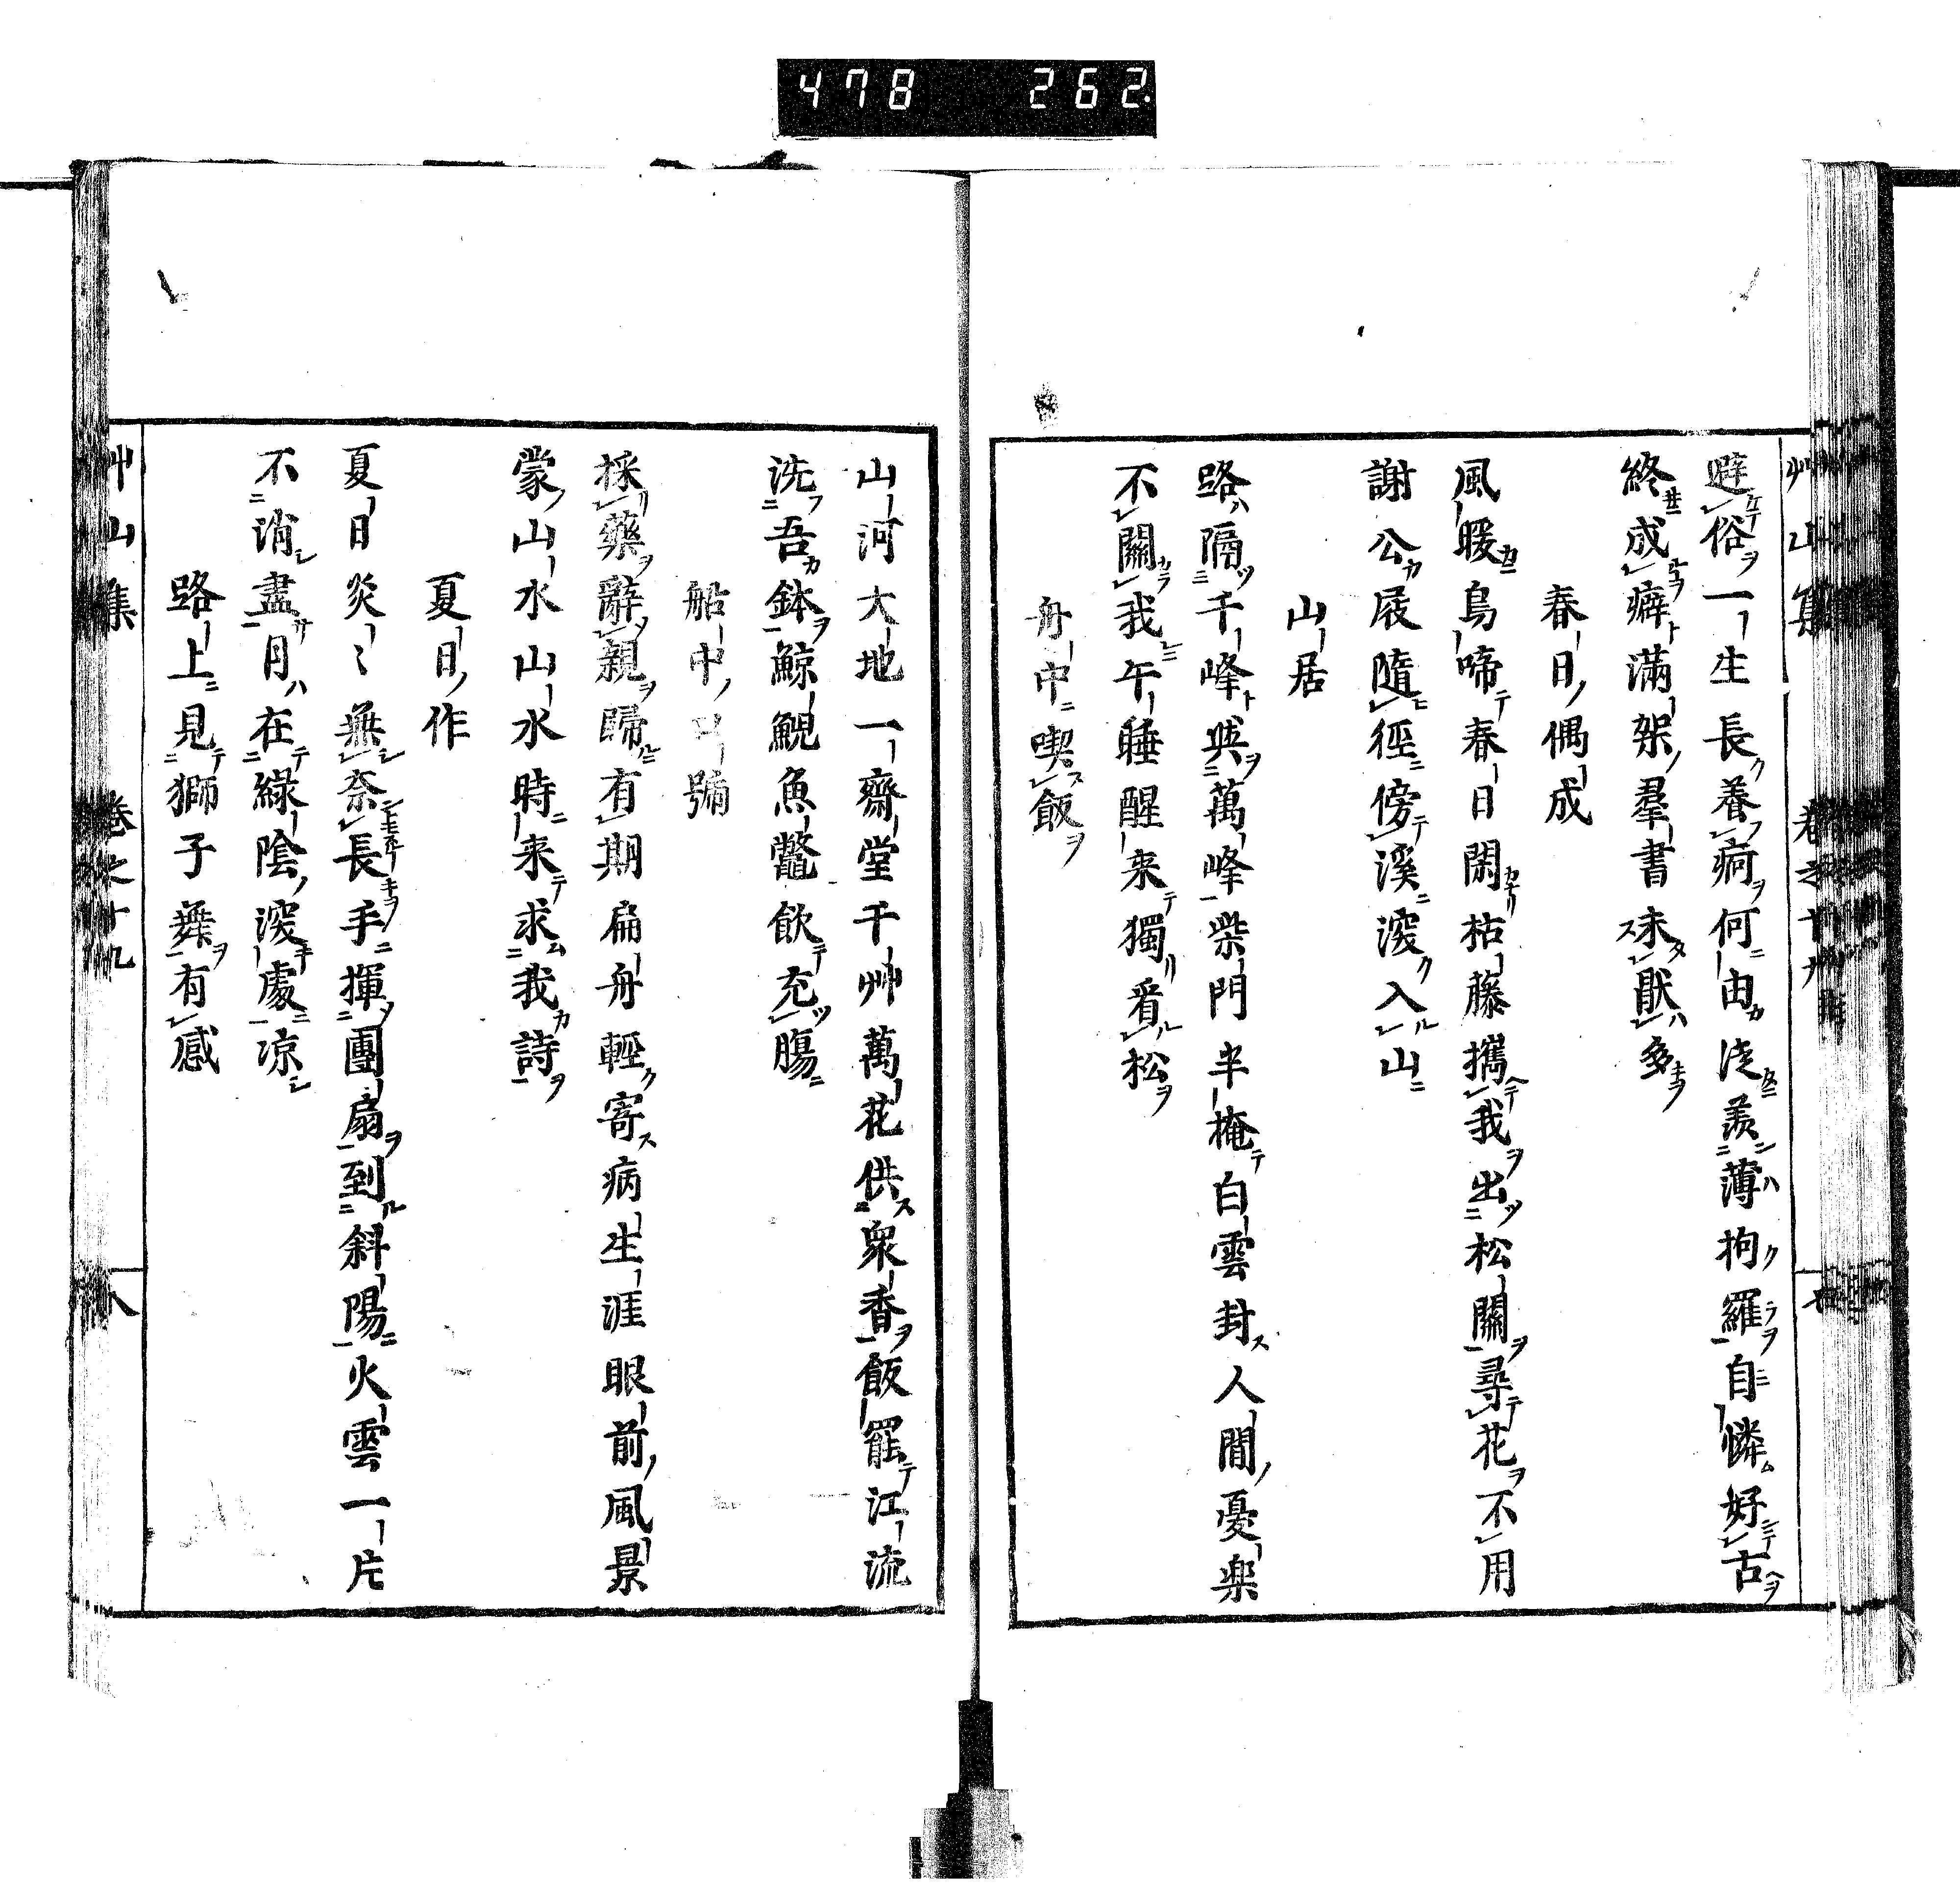 478 262
艸山集
避俗一生長養痾何由浅羨薄拘羅自憐好古
終成癖滿架羣書未猒多
春日偶成
風暖鳥啼春日閑枯藤攜我出松關尋花不用
謝公屐隨徑傍溪深入山
山居
路隔千峰與萬峰柴門半掩白雲封人間憂楽
不關我午睡醒来獨看松
舟中喫飯
山河大地一齋堂千艸萬花供衆香飯罷江流
洗吾鉢鯨鯢魚鼈飲充膓
船中口號
採藥辭親歸有期扁舟輕寄病生涯眼前風景
蒙山水山水時来求我詩
夏日作
夏日炎〻無奈長手揮團扇到斜陽火雲一片
不消盡月在緑陰深處凉
路上見獅子舞有感
艸山集 卷之十九 八